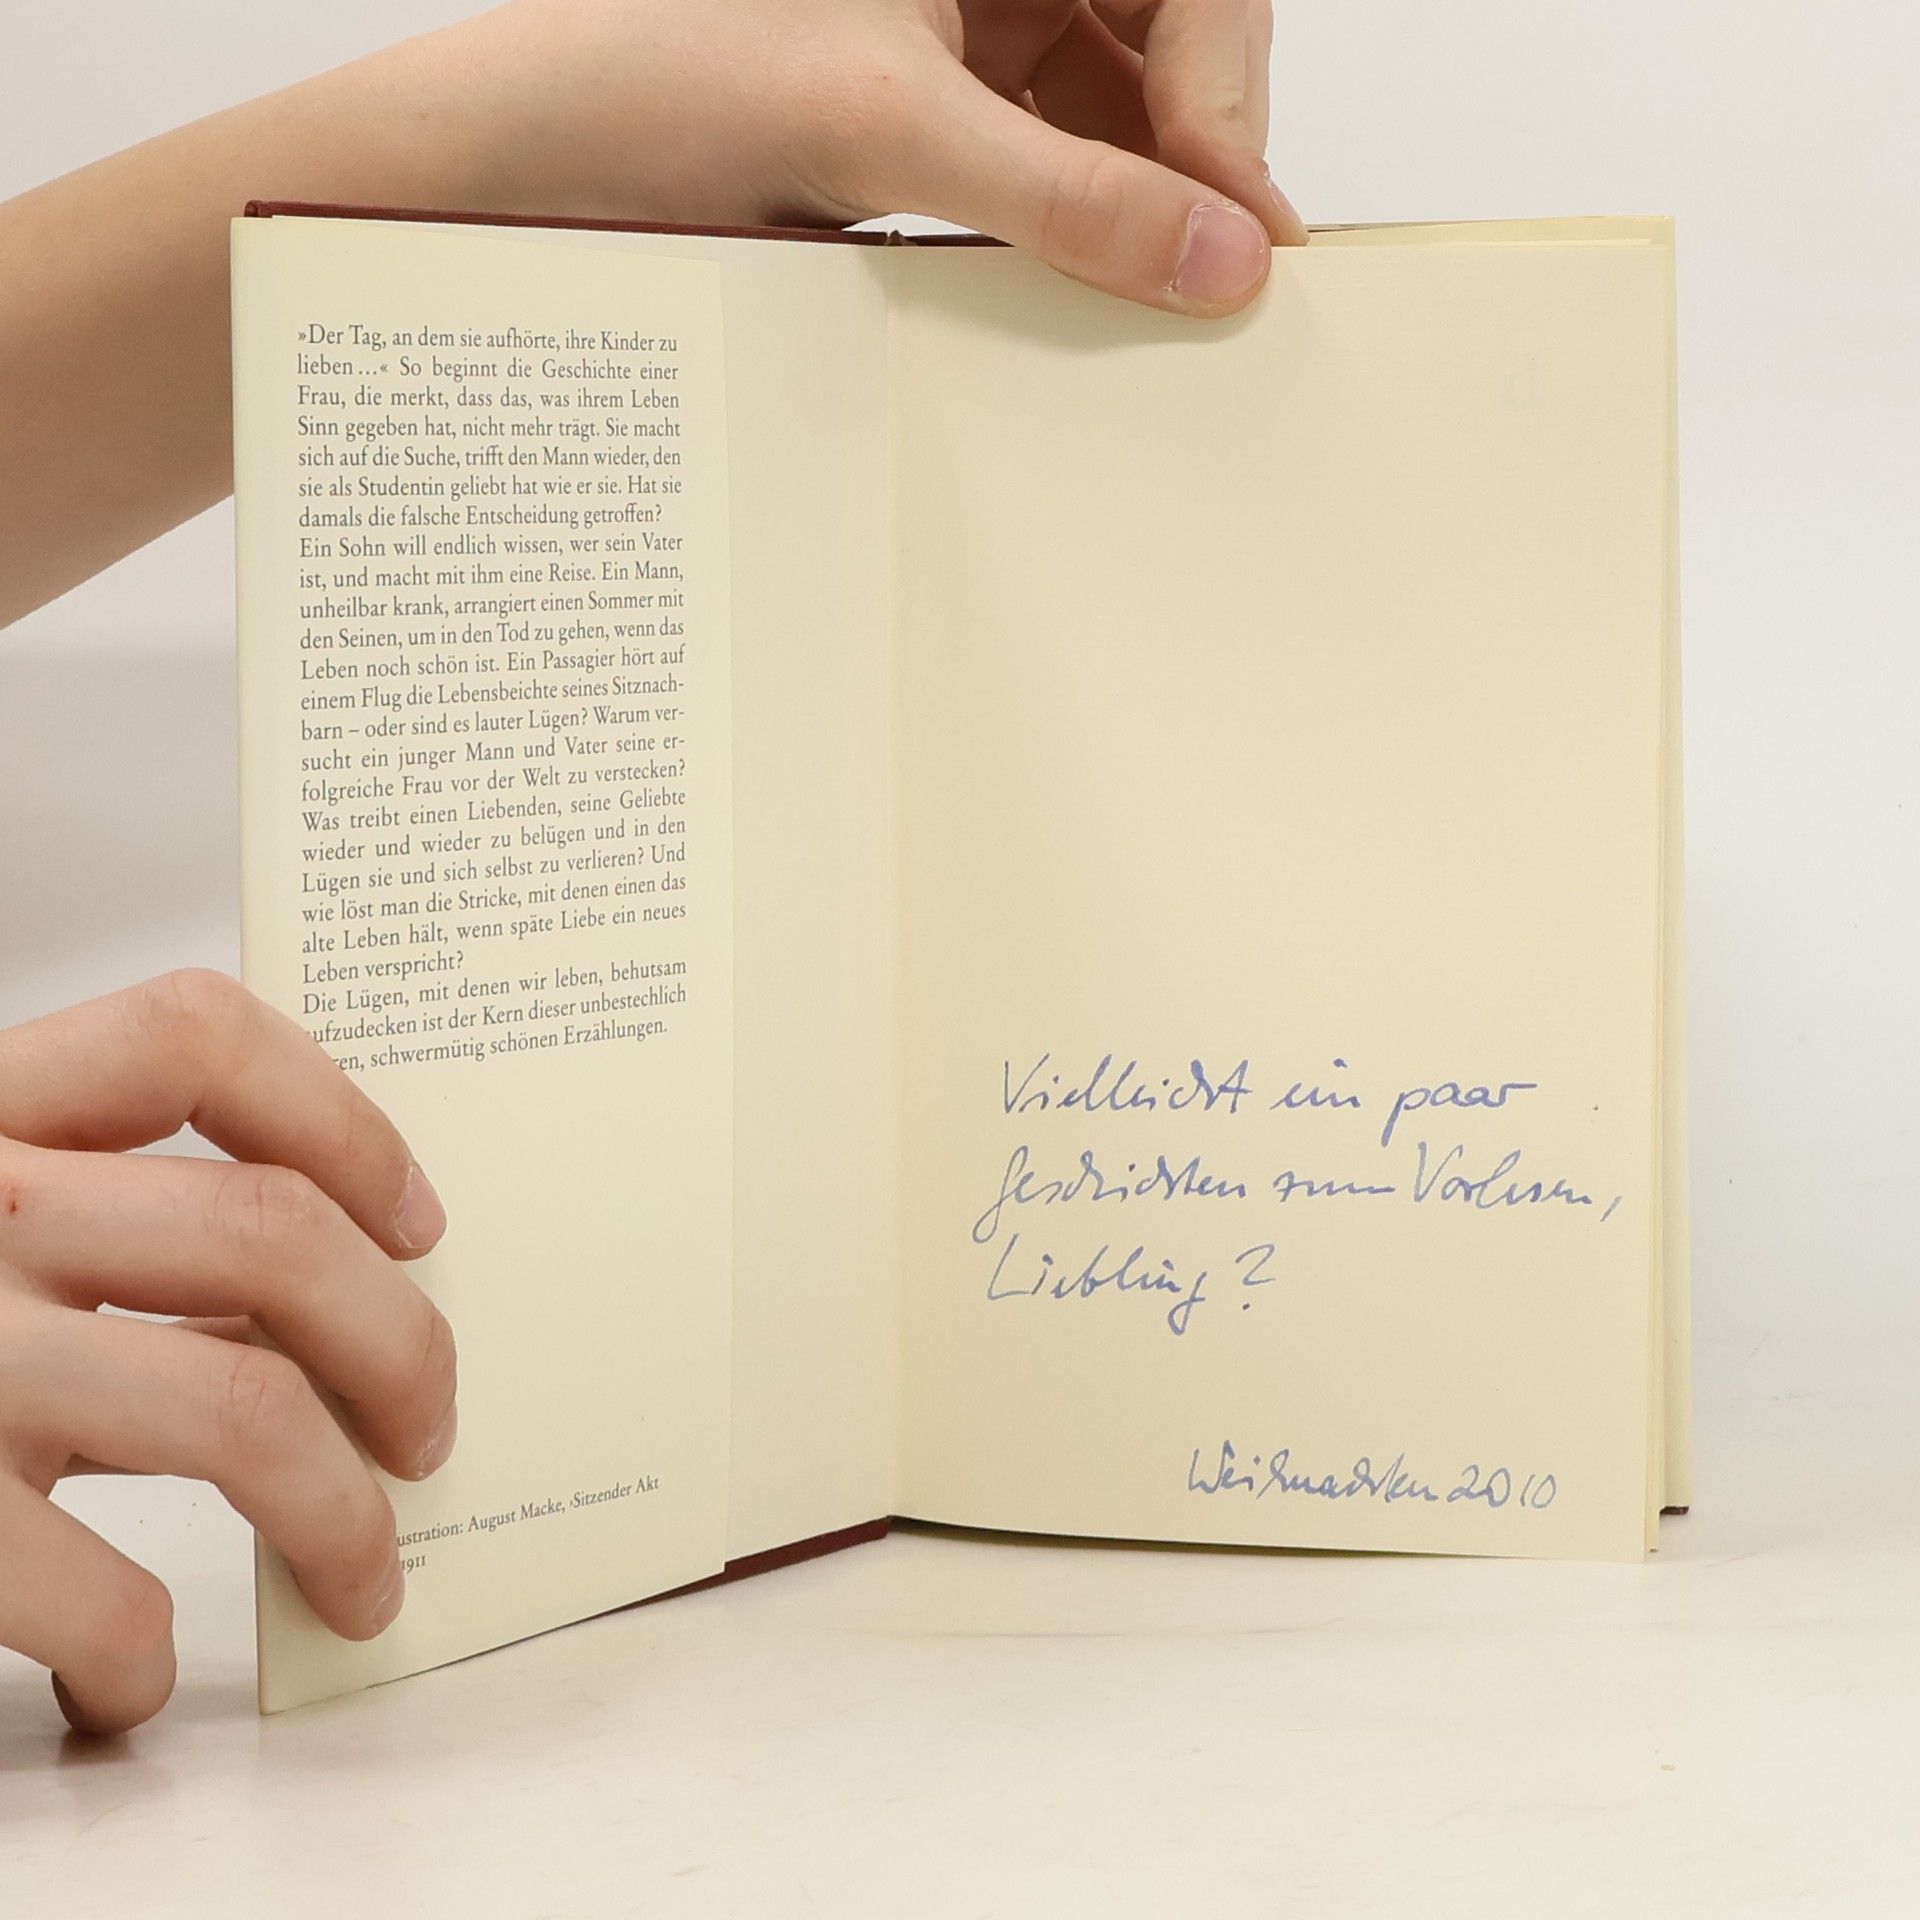 »Der Tag, an dem sie aufhörte, ihre Kinder zu
lieben …« So beginnt die Geschichte einer
Frau, die merkt, dass das, was ihrem Leben
Sinn gegeben hat, nicht mehr trägt. Sie macht
sich auf die Suche, trifft den Mann wieder, den
sie als Studentin geliebt hat wie er sie. Hat sie
damals die falsche Entscheidung getroffen?
Ein Sohn will endlich wissen, wer sein Vater
ist, und macht mit ihm eine Reise. Ein Mann,
unheilbar krank, arrangiert einen Sommer mit
den Seinen, um in den Tod zu gehen, wenn das
Leben noch schön ist. Ein Passagier hört auf
einem Flug die Lebensbeichte seines Sitznach-
barn – oder sind es lauter Lügen? Warum ver-
sucht ein junger Mann und Vater seine er-
folgreiche Frau vor der Welt zu verstecken?
Was treibt einen Liebenden, seine Geliebte
wieder und wieder zu belügen und in den
Lügen sie und sich selbst zu verlieren? Und
wie löst man die Stricke, mit denen einen das
alte Leben hält, wenn späte Liebe ein neues
Leben verspricht?
Die Lügen, mit denen wir leben, behutsam
ufzudecken ist der Kern dieser unbestechlich
ren, schwermütig schönen Erzählungen.
ustration: August Macke, ›Sitzender Akt
1911
Vielleicht ein paar
Geschichten zum Vorlesen,
Liebling?
Weihnachten 2010